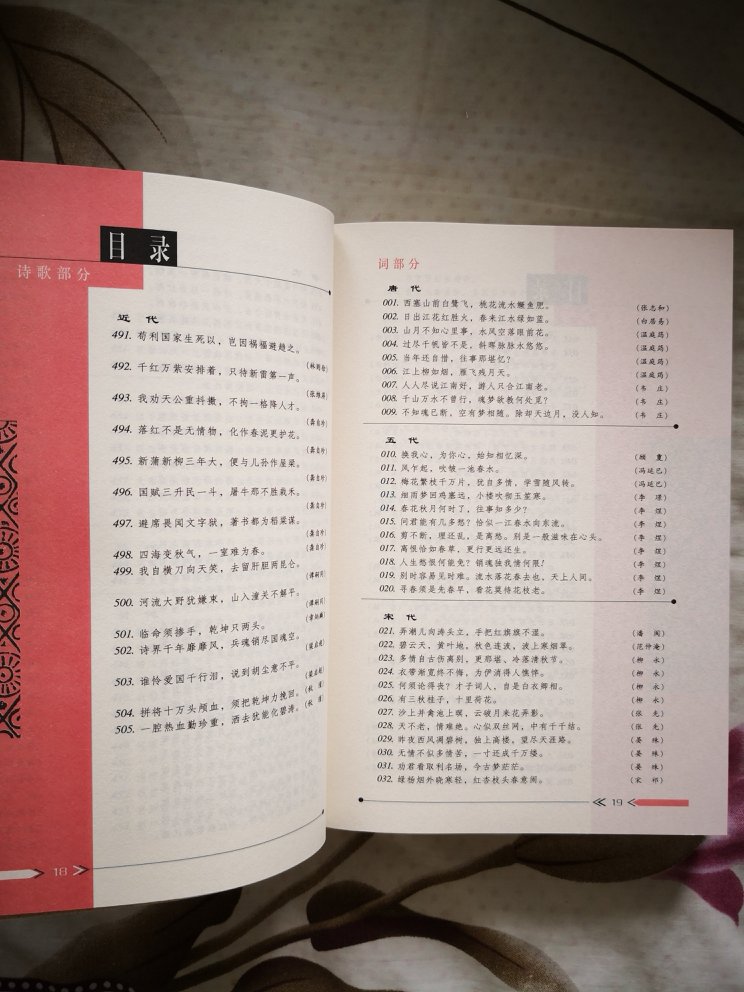 目录
诗歌部分
近代
491. 苟利国家生死以，岂因祸福避趋之。
(林则徐)
492. 千红万紫安排着，只待新雷第一声。
(张维屏)
493. 我劝天公重抖擞，不拘一格降人才。
(龚自珍)
494. 落红不是无情物，化作春泥更护花。
(龚自珍)
495. 新蒲新柳三年大，便与儿孙作屋梁。
(龚自珍)
496. 国赋三升民一斗，屠牛那不胜栽禾。
(龚自珍)
497. 避席畏闻文字狱，著书都为稻粱谋。
(龚自珍)
498. 四海变秋气，一室难为春。 (龚自珍)
499. 我自横刀向天笑，去留肝胆两昆仑。
(谭嗣同)
500. 河流大野犹嫌束，山入潼关不解平。
(谭嗣同)
501. 临命须掺手，乾坤只两头。 (章炳麟)
502. 诗界千年靡靡风，兵魂销尽国魂空。
(梁启超)
503. 谁怜爱国千行泪，说到胡尘意不平。
(梁启超)
504. 拼将十万头颅血，须把乾坤力挽回。(秋瑾)
505. 一腔热血勤珍重，洒去犹能化碧涛。(秋瑾)
18
词部分
唐代
001. 西塞山前白鹭飞，桃花流水鳜鱼肥。 (张志和)
002. 日出江花红胜火，春来江水绿如蓝。 (白居易)
003. 山月不知心里事，水风空落眼前花。 (温庭筠)
004. 过尽千帆皆不是，斜晖脉脉水悠悠。 (温庭筠)
005. 当年还自惜，往事那堪忆？ (温庭筠)
006. 江上柳如烟，雁飞残月天。 (温庭筠)
007. 人人尽说江南好，游人只合江南老。 (韦庄)
008. 千山万水不曾行，魂梦欲教何处觅？ (韦庄)
009. 不知魂已断，空有梦相随。除却天边月，没人知。 (韦庄)
五代
010. 换我心，为你心，始知相忆深。 (顾夐)
011. 风乍起，吹皱一池春水。 (冯延巳)
012. 梅花繁枝千万片，犹自多情，学雪随风转。 (冯延巳)
013. 细雨梦回鸡塞远，小楼吹彻玉笙寒。 (李璟)
014. 春花秋月何时了，往事知多少？ (李煜)
015. 问君能有几多愁？恰似一江春水向东流。 (李煜)
016. 剪不断，理还乱，是离愁。别是一般滋味在心头。 (李煜)
017. 离恨恰如春草，更行更远还生。 (李煜)
018. 人生愁恨何能免？销魂独我情何限！ (李煜)
019. 别时容易见时难。流水落花春去也，天上人间。 (李煜)
020. 寻春须是先春早，看花莫待花枝老。 (李煜)
宋代
021. 弄潮儿向涛头立，手把红旗旗不湿。 (潘阆)
022. 碧云天，黄叶地，秋色连波，波上寒烟翠。 (范仲淹)
023. 多情自古伤离别，更那堪，冷落清秋节。 (柳永)
024. 衣带渐宽终不悔，为伊消得人憔悴。 (柳永)
025. 何须论得丧？才子词人，自是白衣卿相。 (柳永)
026. 有三秋桂子，十里荷花。 (柳永)
027. 沙上并禽池上暝，云破月来花弄影。 (张先)
028. 天不老，情难绝。心似双丝网，中有千千结。 (张先)
029. 昨夜西风凋碧树，独上高楼，望尽天涯路。 (晏殊)
030. 无情不似多情苦，一寸还成千万缕。 (晏殊)
031. 劝君看取利名场，今古梦茫茫。 (晏殊)
032. 绿杨烟外晓寒轻，红杏枝头春意闹。 (宋祁)
19